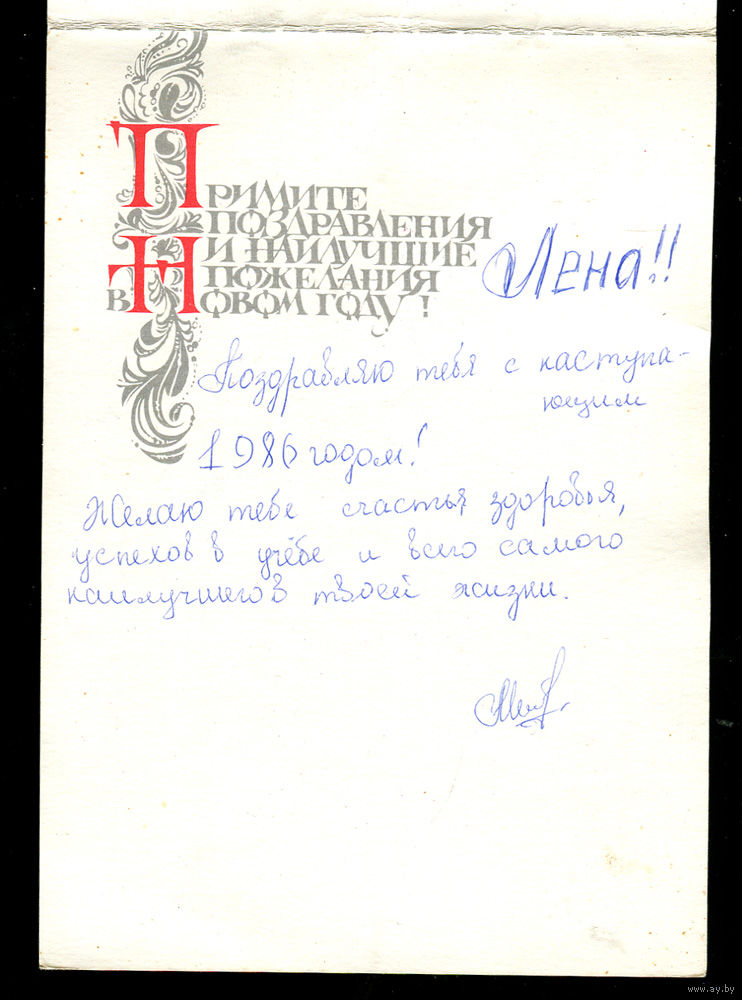 Примите
поздравления
и наилучшие
пожелания
в Новом году!
Лена!!
Поздравляю тебя с наступа-
ющим
1986 годом!
Желаю тебе счастья, здоровья,
успехов в учёбе и всего самого
наилучшего в твоей жизни.
www.ay.by